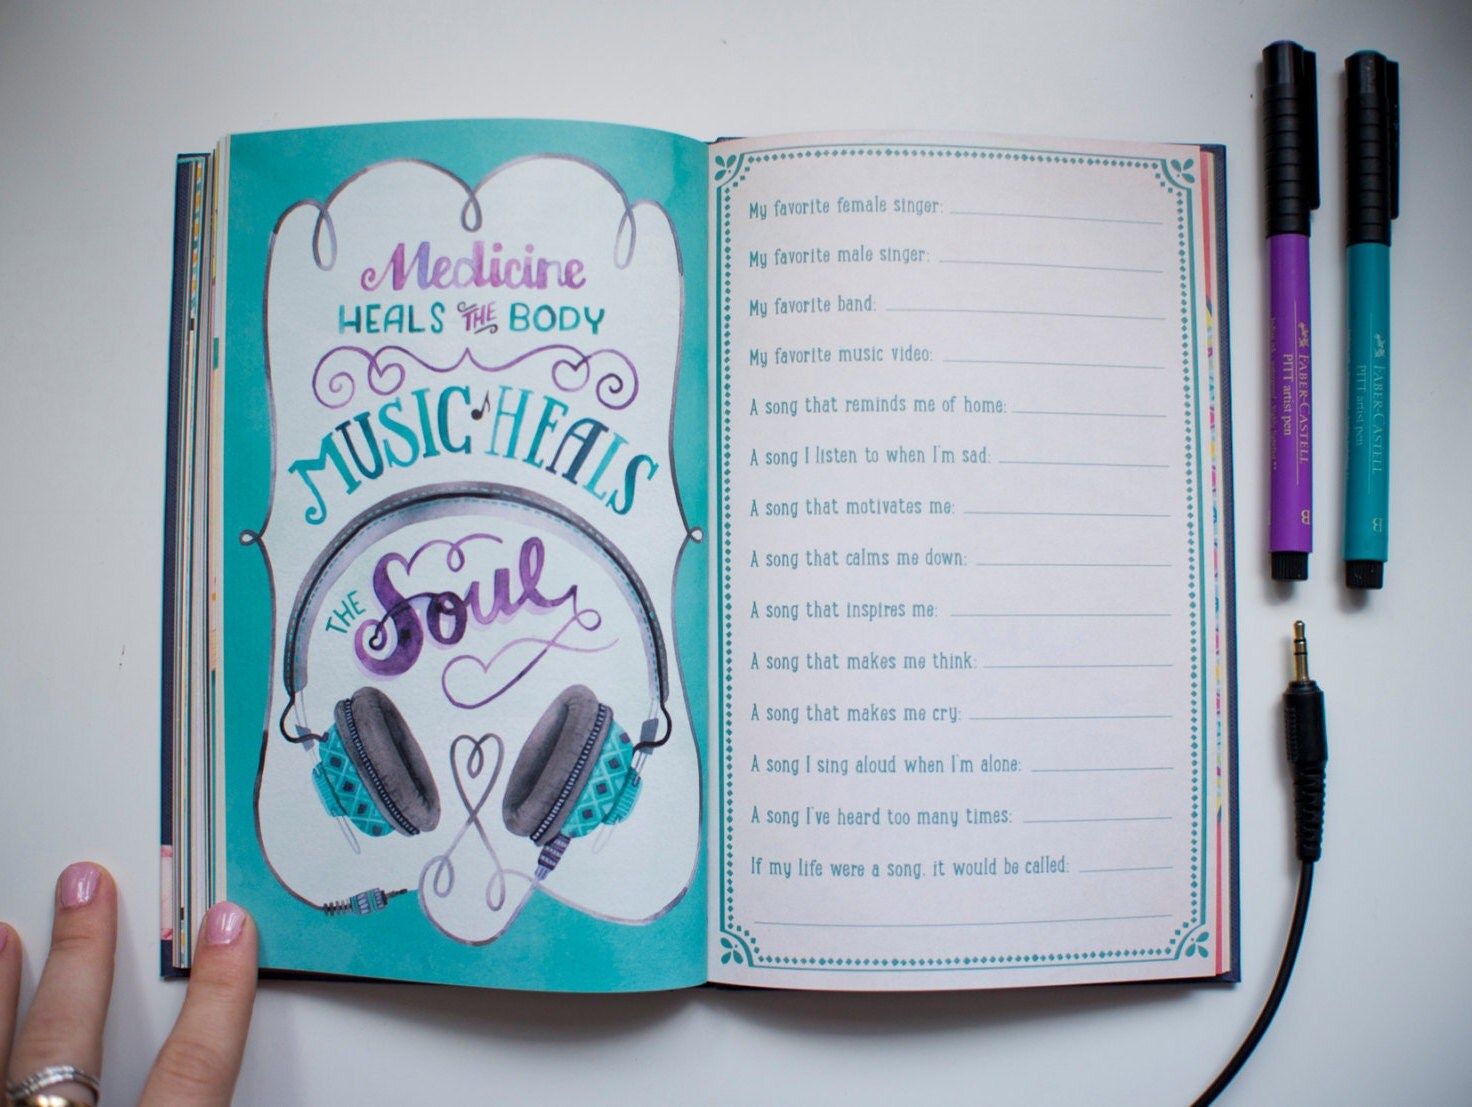 Medicine
HEALS THE BODY
MUSIC HEALS
THE Soul
My favorite female singer:
My favorite male singer:
My favorite band:
My favorite music video:
A song that reminds me of home:
A song I listen to when I'm sad:
A song that motivates me:
A song that calms me down:
A song that inspires me:
A song that makes me think:
A song that makes me cry:
A song I sing aloud when I'm alone:
A song I've heard too many times:
If my life were a song, it would be called:
FABER-CASTELL
PITT artist pen
B
FABER-CASTELL
PITT artist pen
B